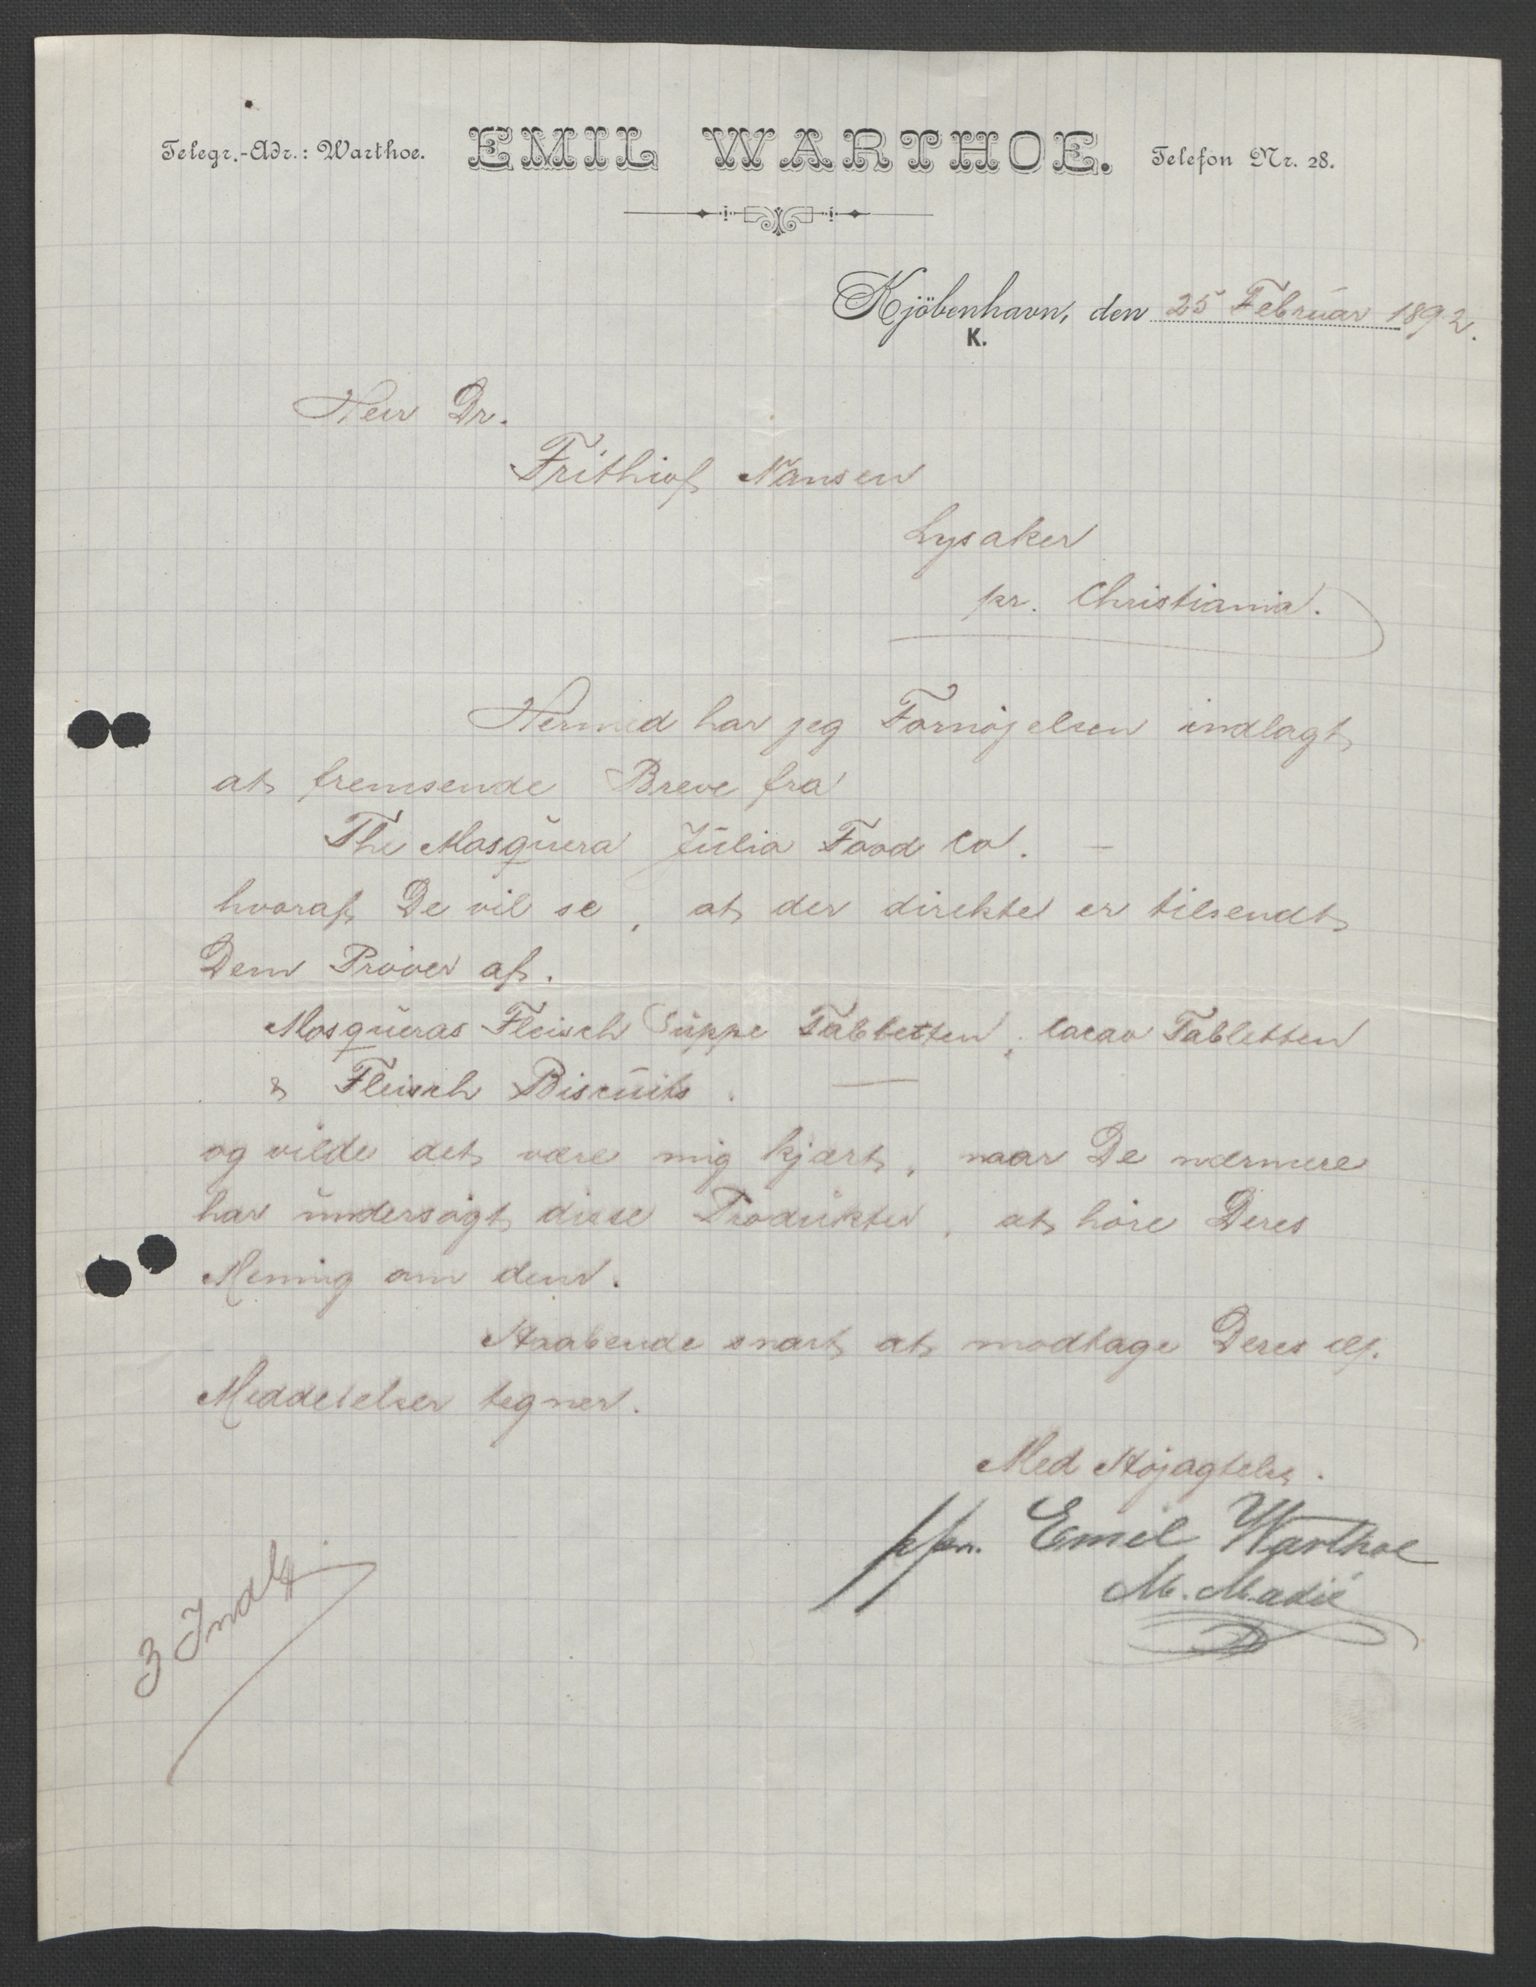 Telegr.-Adr.: Warthoe. EMIL WARTHOE. Telefon Nr. 28.
Kjöbenhavn, den 25 Februar 1892.
K.
Herr Dr.
Frithiof Nansen
Lysaker
pr. Christiania.
Hermed har jeg Fornöjelsen indlagt
at fremsende Breve fra
The Mosquera Julia Food Co. —
hvoraf De vil se, at der direkte er tilsendt
Dem Pröver af.
Mosqueras Fleisch Suppe Tabletten, Cacao Tabletten
& Fleisch Biscuits. —
og vilde det være mig kjært, naar De nærmere
har undersögt disse Produkter, at höre Deres
Mening om dem.
Haabende snart at modtage Deres
Meddelelser tegner.
Med Höjagtelse.
ppr. Emil Warthoe
3 Indlg